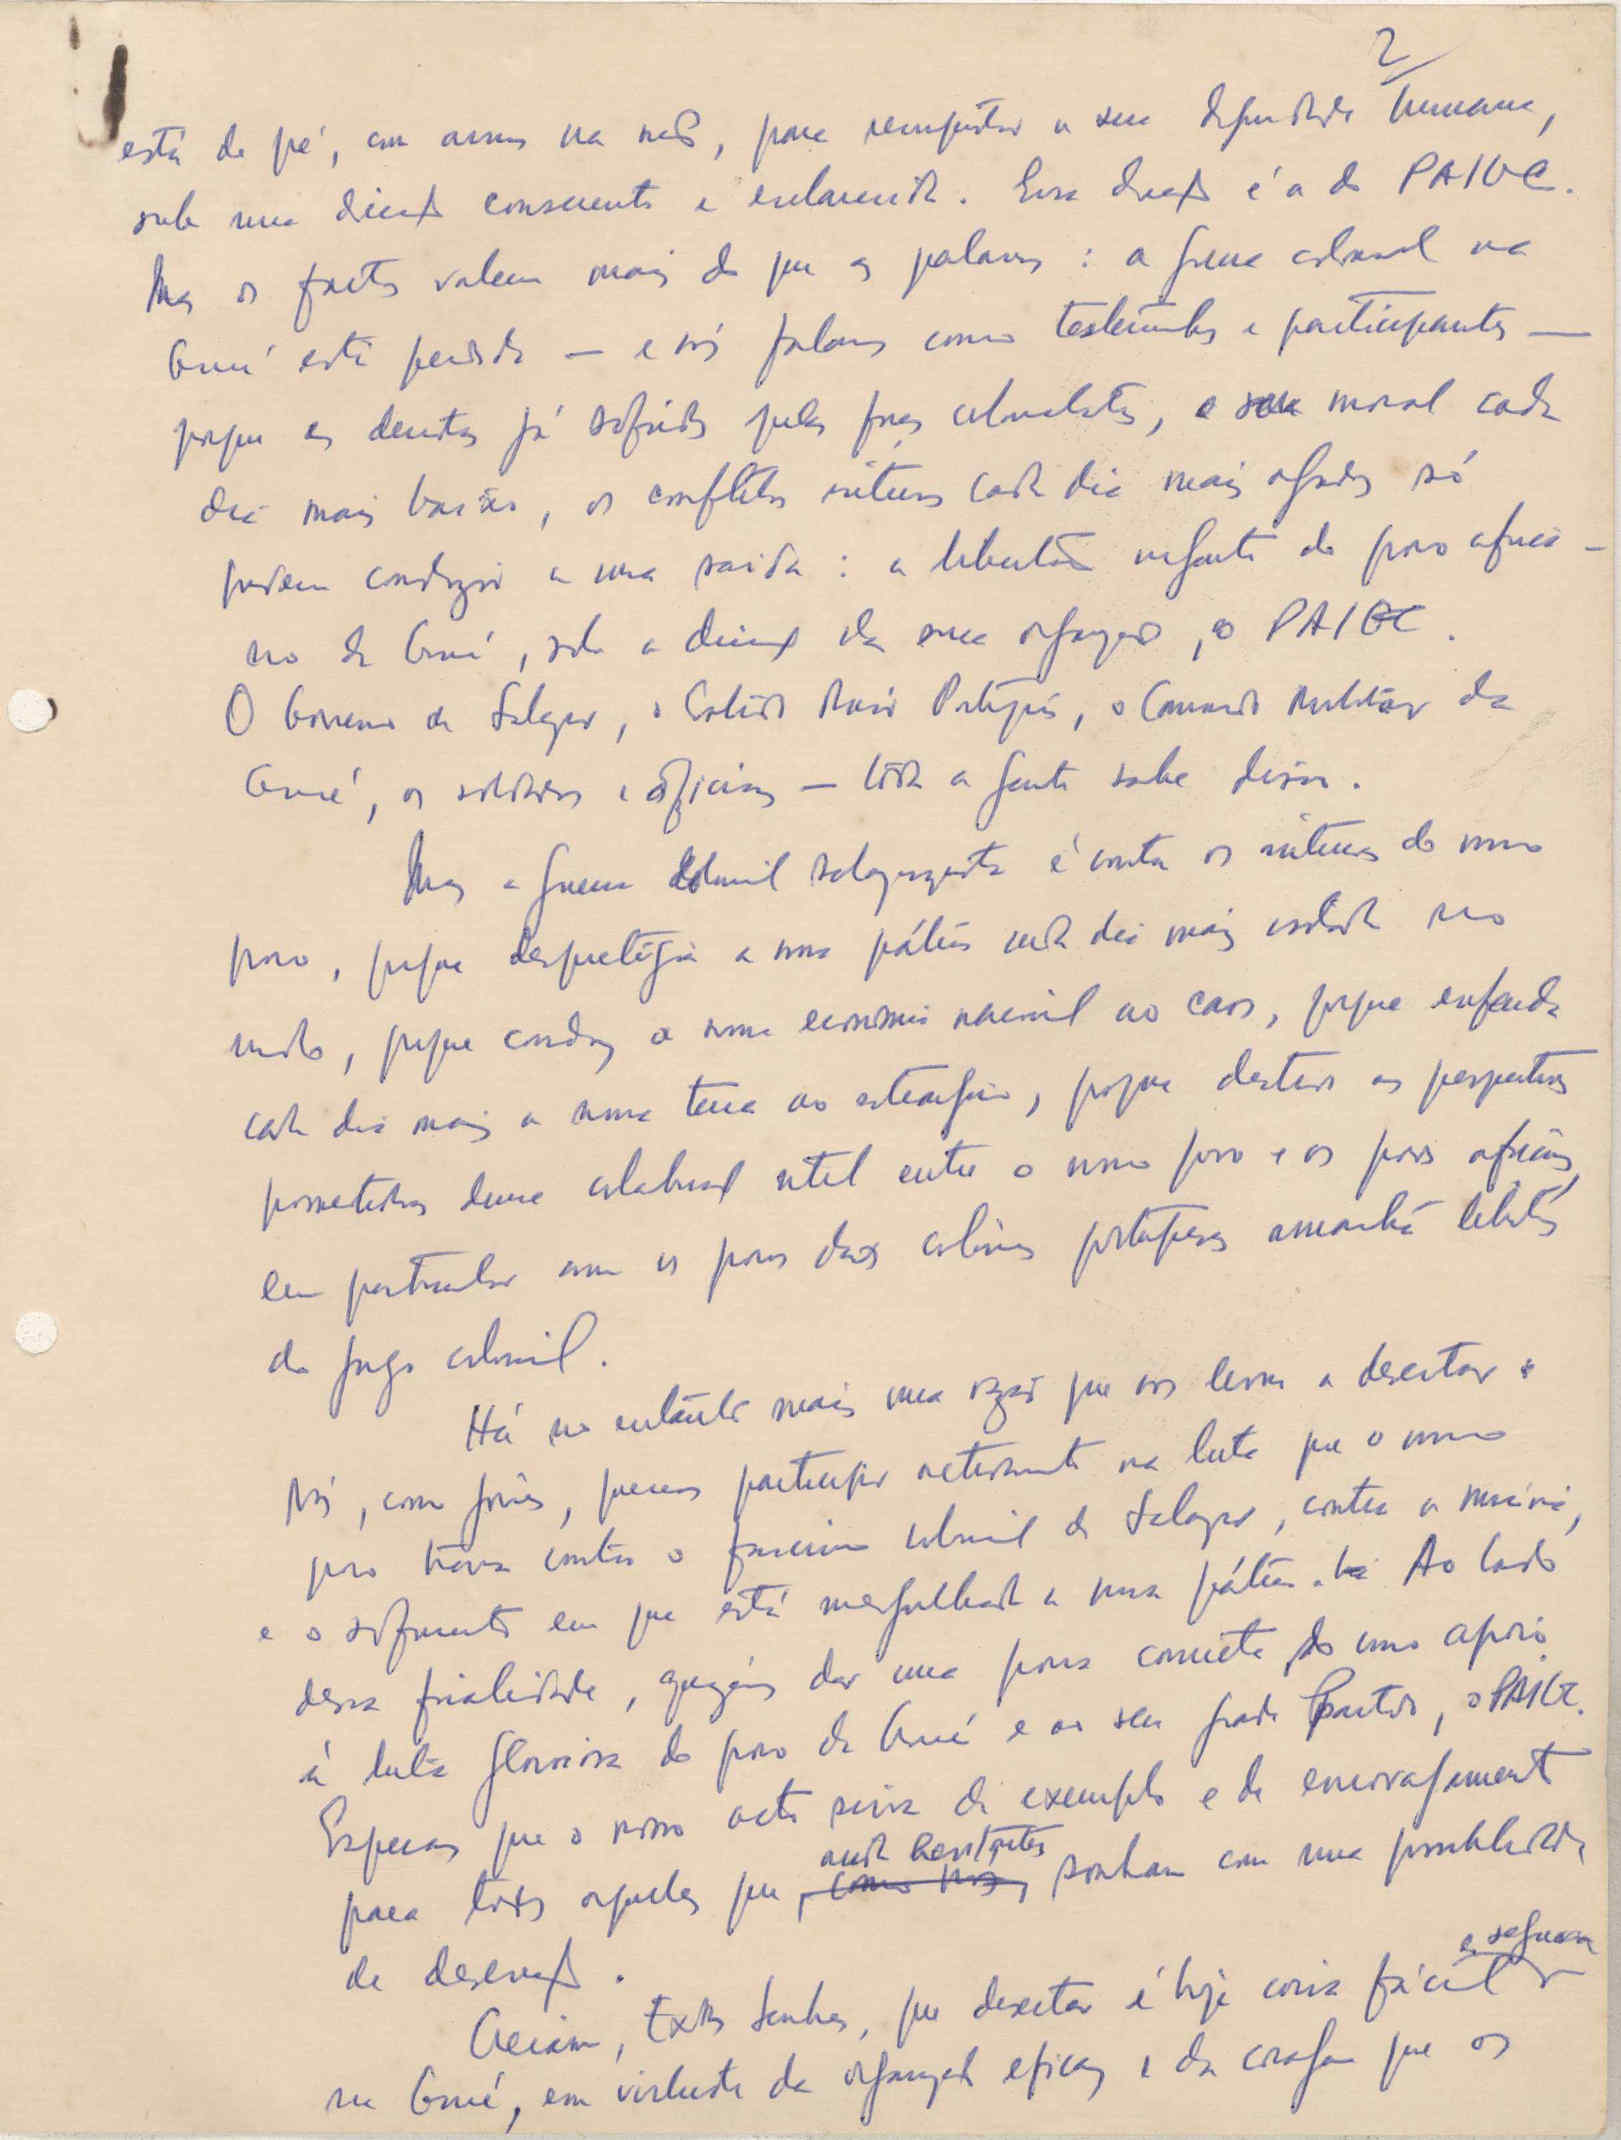 2
está de pé, com armas na mão, para reconquistar a sua dignidade humana,
sob uma direcção consciente e esclarecida. Essa direcção é a do PAIGC.
Mas os factos valem mais do que as palavras : a guerra colonial na
Guiné está perdida — e nós falamos como testemunhas e participantes —
porque as derrotas já sofridas pelas forças colonialistas, o seu moral cada
dia mais baixo, os conflitos internos cada dia mais agudos só
podem conduzir a uma saída : a libertação urgente do povo africa-
no da Guiné, sob a direcção da sua organização, o PAIGC.
O Governo de Salazar, o Estado Maior Português, o Comando Militar da
Guiné, os soldados e oficiais — tôda a gente sabe disso.
Mas a guerra colonial salazarista é contra os interesses do nosso
povo, porque desprestigia a nossa pátria cada dia mais isolada no
mundo, porque conduz a nossa economia nacional ao caos, porque enfeuda
cada dia mais a nossa terra ao estrangeiro, porque destrói as perspectivas
prometedoras duma colaboração util entre o nosso povo e os povos africanos,
em particular com os povos das colónias portuguesas amanhã libertos
do jugo colonial.
Há no entanto mais uma razão que nos levou a desertar :
Nós, como jóvens, queremos participar activamente na luta que o nosso
povo trava contra o fascismo colonial de Salazar, contra a miséria,
e o sofrimento em que está mergulhada a nossa pátria. Ao lado
dessa finalidade, quizémos dar uma prova concreta do nosso apoio
à luta gloriosa do povo da Guiné e ao seu grande Partido, o PAIGC.
Esperamos que o nosso acto sirva de exemplo e de encorajamento
ainda hesitantes
para todos aqueles que, como nós, sonham com uma possibilidade
de deserção.
e segura
Creiam, Exmos Senhores, que desertar é hoje coisa fácil
na Guiné, em virtude da organização eficaz e da coragem que os